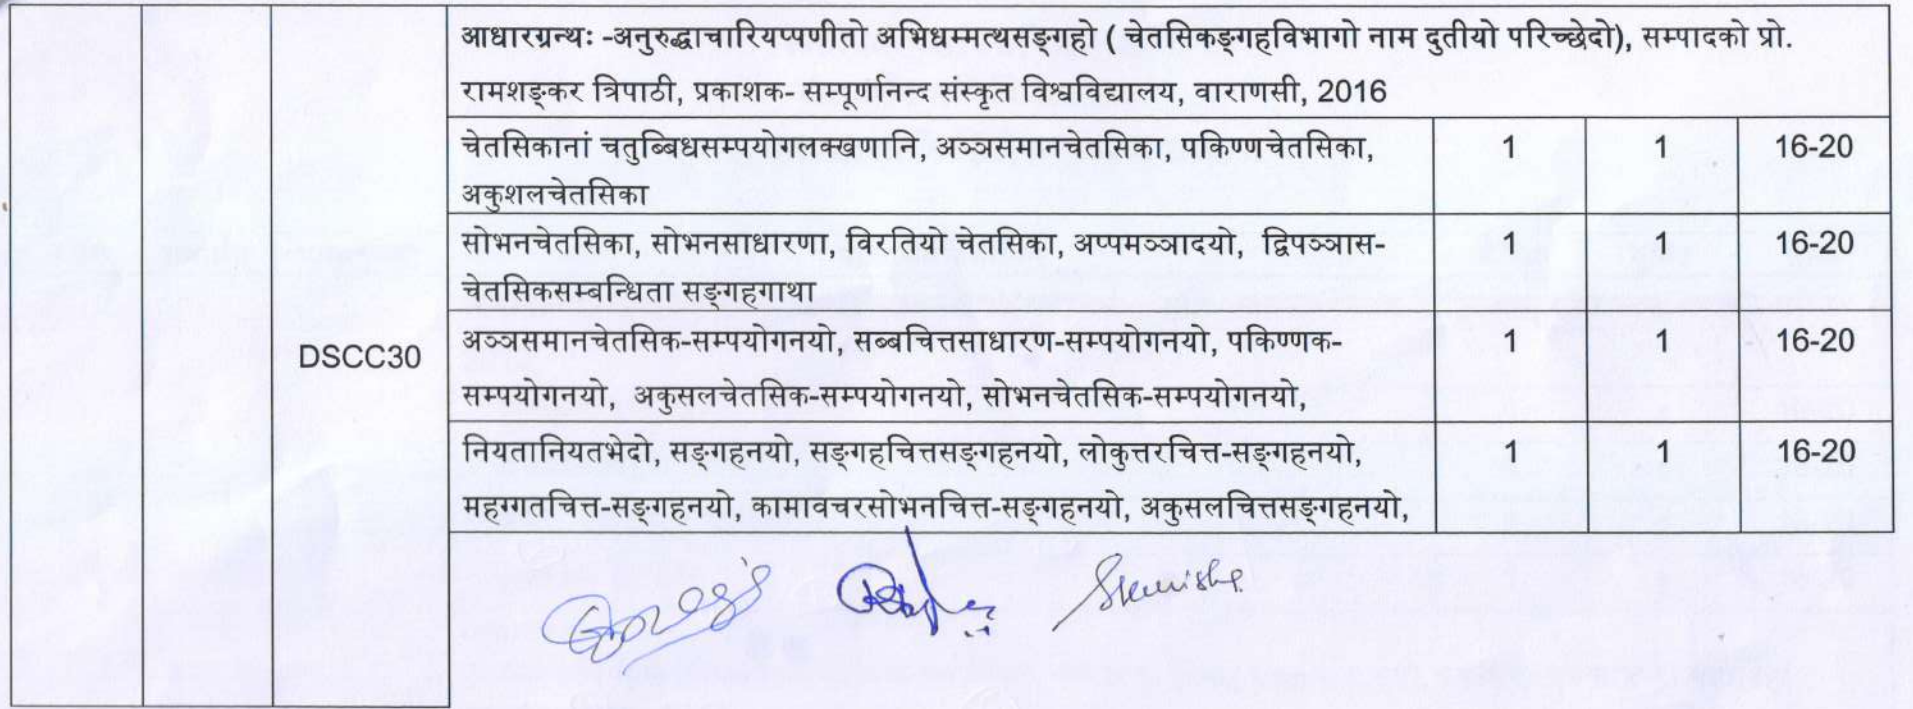 आधारग्रन्थः -अनुरुद्धाचारियप्पणीतो अभिधम्मत्थसङ्गहो ( चेतसिकङ्गहविभागो नाम दुतीयो परिच्छेदो), सम्पादको प्रो.
रामशङ्कर त्रिपाठी, प्रकाशक- सम्पूर्णानन्द संस्कृत विश्वविद्यालय, वाराणसी, 2016
चेतसिकानां चतुब्बिधसम्पयोगलक्खणानि, अञ्ञसमानचेतसिका, पकिण्णचेतसिका, 1 1 16-20
अकुशलचेतसिका
सोभनचेतसिका, सोभनसाधारणा, विरतियो चेतसिका, अप्पमञ्ञादयो, द्विपञ्ञास- 1 1 16-20
चेतसिकसम्बन्धिता सङ्गहगाथा
DSCC30 अञ्ञसमानचेतसिक-सम्पयोगनयो, सब्बचित्तसाधारण-सम्पयोगनयो, पकिण्णक- 1 1 16-20
सम्पयोगनयो, अकुसलचेतसिक-सम्पयोगनयो, सोभनचेतसिक-सम्पयोगनयो,
नियतानियतभेदो, सङ्गहनयो, सङ्गहचित्तसङ्गहनयो, लोकुत्तरचित्त-सङ्गहनयो, 1 1 16-20
महग्गतचित्त-सङ्गहनयो, कामावचरसोभनचित्त-सङ्गहनयो, अकुसलचित्तसङ्गहनयो,